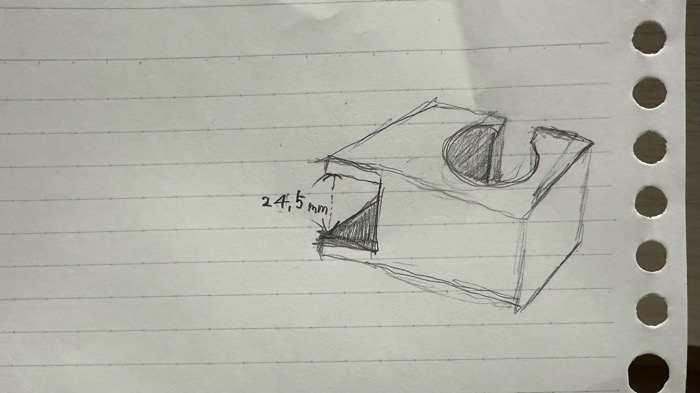 24,5 mm